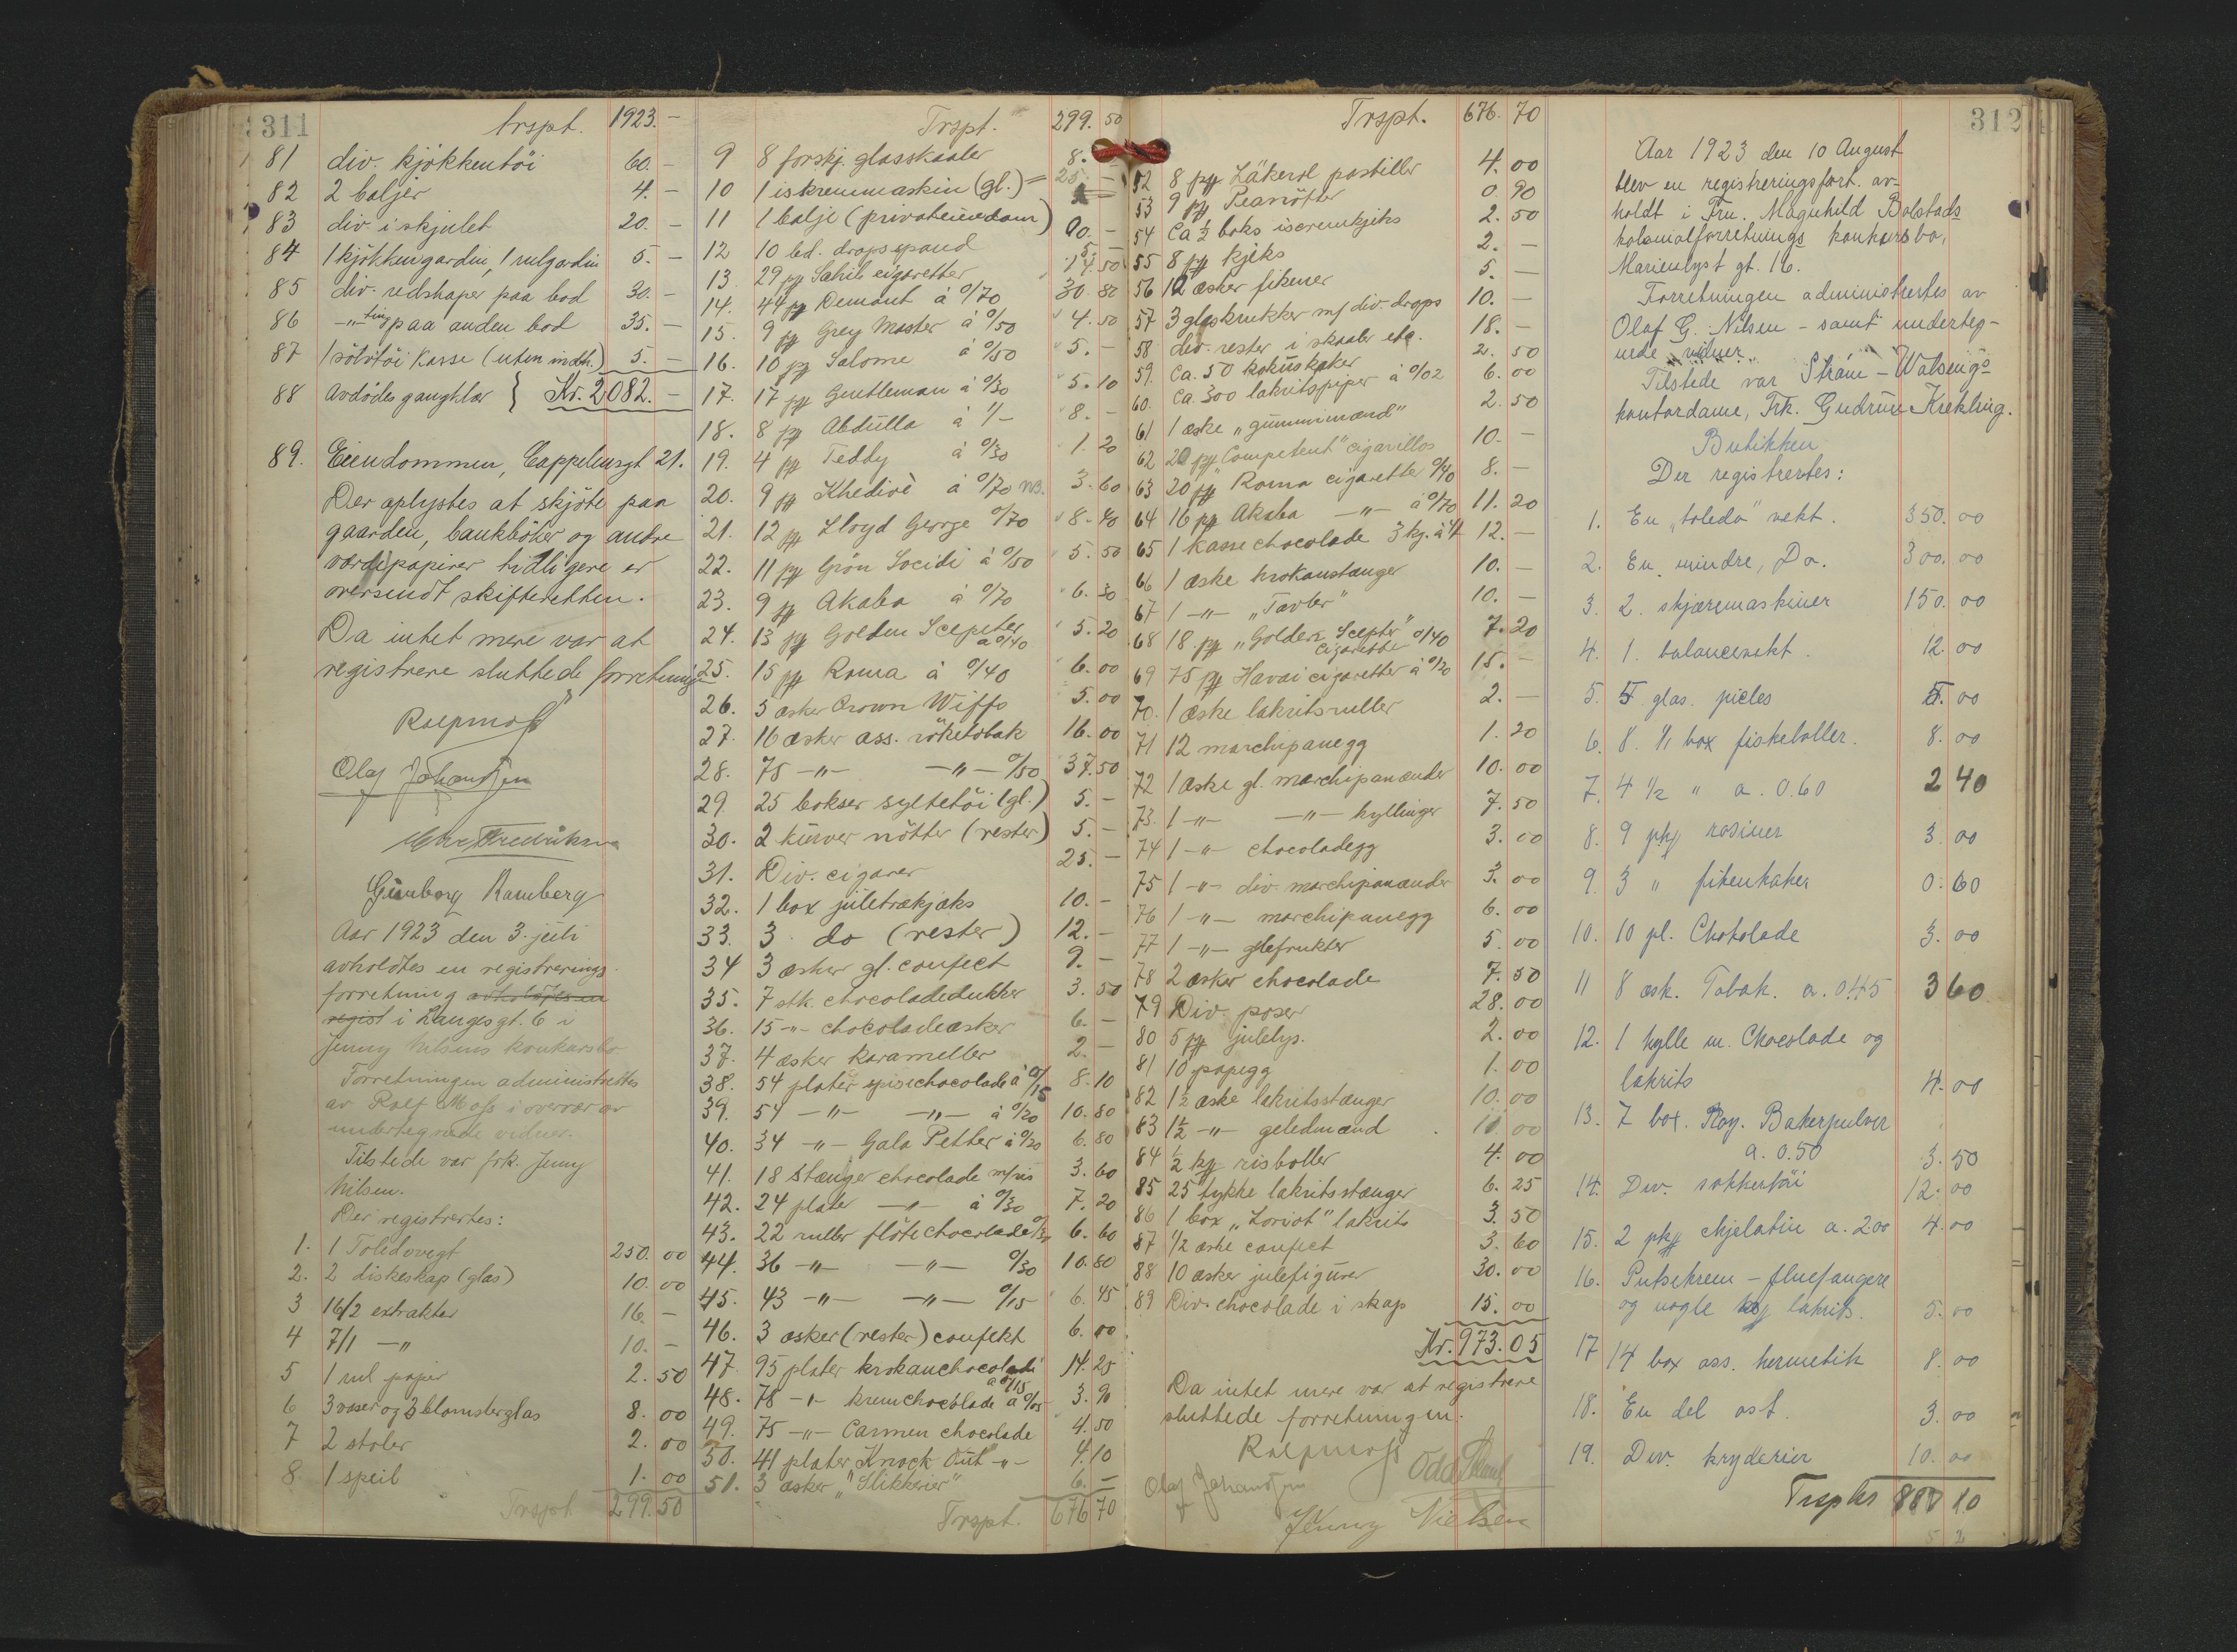 311
trspt. 1923.-
81 div. kjökkentöi 60.-
82 2 baljer 4.-
83 div. i skjulet 20.-
84 1 kjökkengardin, 1 rulgardin 5.-
85 div. redskaper paa bod 30.-
86 -"- ting paa anden bod 35.-
87 1 sölvtöi kasse (uten indh.) 5.-
88 Avdödes gangklær } Kr. 2082.-
89. Eiendommen, Cappelensgt 21.
Der oplystes at skjöte paa
gaarden, bankböker og andre
værdipapirer tidligere er
oversendt skifteretten.
Da intet mere var at
registrere sluttede forretningen
Rolf Moss
Olaf Johansen
Fredriksen
Gunborg Ramberg
Aar 1923 den 3. juli
avholdtes en registrerings-
forretning avholdtes en
regist i Langesgt. 6 i
Jenny Nilsens konkursbo
Forretningen administrertes
av Rolf Moss i overvær av
undertegnede vidner.
Tilstede var frk. Jenny
Nilsen.
Der registrertes:
1. 1 Toledovegt 250.00
2. 2 diskeskap (glas) 10.00
3 16/2 extrakter 16.-
4 7/1 -"- 10.-
5 1 rul papir 2.50
6 3 vaser og 3 blomsterglas 8.00
7 2 stoler 2.00
8. 1 speil 1.00
Trspt 299.50
Trspt. 299.50
9 8 forskj. glasskaaler 8.-
10 1 iskremmaskin (gl.) = 25.-
11 1 balje (privateiendom) 0.-
12 10 bd. dropsspand 5.-
13. 29 pg Sahib cigaretter 14.50
14. 44 pg Demant á 0/70 30.80
15. 9 pg Grey Master á 0/50 4.50
16. 10 pg Salome á 0/50 5.-
17. 17 pg Gentleman á 0/30 5.10
18. 8 pg Abdulla á 1/- 8.-
19. 4 pg Teddy á 0/30 1.20
20. 9 pg Khedivè á 0/70 NB. 3.60
21. 12 pg Lloyd George 0/70 8.40
22. 11 pg Grön Socidi á 0/50 5.50
23. 9 pg Akaba á 0/70 6.30
24. 13 pg Golden Scepeter á 0/40 5.20
25. 15 pg Roma á 0/40 6.00
26. 5 æsker Crown Wiffs 5.00
27. 16 æsker ass. röketobak 16.00
28. 75 -"- -"- 0/50 37.50
29. 25 bokser syltetöi (gl.) 5.-
30. 2 kurver nötter (rester) 5.-
31. Div. cigarer 25.-
32. 1 box juletrækjæks 10.-
33. 3 do (rester) 12.-
34 3 æsker gl. confect 9.-
35. 7 stk. chocoladedukker 3.50
36. 15 -"- chokoladeæsker 6.-
37. 4 æsker karameller 2.-
38. 54 plater spisechocolade á 0/15 8.10
39. 54 -"- -"- á 0/20 10.80
40. 34 -"- Gala Petter á 0/20 6.80
41. 18 stænger chocolade m/ris 3.60
42. 24 plater -"- á 0/30 7.20
43. 22 ruller flötechocolade 0/30 6.60
44. 36 -"- -"- 0/30 10.80
45. 43 -"- -"- 0/15 6.45
46. 3 æsker (rester) confekt 6.00
47. 95 plater krokanchocolade á 0/15 14.25
48. 78 -"- kremchocolade á 0/05 3.90
49. 75 -"- Carmen chocolade 4.50
50. 41 plater Knock Out -"- 4.10
51. 3 æsker "Slikkerier" 6.-
Trspt. 676.70
Trspt. 676.70
52 8 pg Läkerol pastiller 4.00
53 9 pg Peanötter 0.90
54 Ca ½ boks iscremkjæks 2.50
55 8 pg kjeks 2.-
56 12 æsker fikener 5.-
57 3 glaskrukker m/ div. drops 10.-
58 div. rester i skaaler etc. 18.-
59. Ca. 50 kokuskaker 2.50
60. Ca. 300 lakritspiper á 0/02 6.00
61 1 æske "gummimænd" 2.50
62 20 pg "Competent" cigarillos 10.-
63 20 pg Roma cigaretter 0/40 8.-
64 16 pg Akaba -"- á 0/70 11.20
65 1 kasse chocolade 3 kg. á 4 12.-
66 1 æske krokanstænger 10.-
67 1 -"- "Tavler" 10.-
68 18 pg "Golden Scepter" cigaretter 0/40 7.20
69 75 pg Havai cigaretter á 0/20 15.-
70. 1 æske lakritsruller 2.-
71 12 marchipanegg 1.20
72 1 æske gl. marchipanænder 10.00
73. 1 -"- -"- kyllinger 7.50
74 1 -"- chocoladegg 3.00
75 1 -"- div. marchipanænder 3.00
76 1 -"- marchipanegg 6.00
77 1 -"- gelefrukter 5.00
78 2 æsker chocolade 7.50
79 Div. poser 28.00
80 5 pg julelys. 2.00
81 10 papegg 1.00
82 1½ æske lakritsstænger 10.00
83 1½ -"- geledmænd 10.00
84 ½ kg risboller 4.00
85 25 tykke lakritsstænger 6.25
86 1 box "Loriot" lakrits 3.50
87 1/2 æske confect 3.60
88 10 æsker julefigurer 30.00
89 Div. chocolade i skap 15.00
Kr. 973.05
Da intet mere var at registrere
sluttede forretningen.
Rolf Moss
Olaf Johansen
Jenny Nielsen
312
Aar 1923 den 10 August
blev en registreringsforr. av-
holdt i Fru. Magnhild Bolstads
kolonialforretnings konkursbo,
Marienlyst gt. 16.
Forretningen administrertes av
Olaf G. Nilsen - samt underteg-
nede vidner.
Tilstede var
kontordame, Frk. Gudrun Krekling.
Butikken
Der registrertes:
1. En "toledo" vekt. 350.00
2. En mindre, Do. 300.00
3. 2. skjæremaskiner 150.00
4. 1. balancevekt. 12.00
5. 5 glas. picles 5.00
6. 8. 1/1 box fiskeboller. 8.00
7. 4 1/2 " a. 0.60 2 40
8. 9 pkg rosiner 3.00
9. 3 " fikenkaker 0.60
10. 10 pl. Chokolade 3.00
11 8 æsk. Tobak. a. 0.45 3 60
12. 1 hylle m. Chocolade og
lakrits 4.00
13. 7 box. Roy. Bakerpulver
a. 0.50 3.50
14. Div. sukkertöi 12.00
15. 2 pkg chjelatin a. 2.00 4.00
16. Putsekrem - fluefangere
og nogle lakrits. 5.00
17 14 box ass. hermetik 8.00
18. En del ost. 3.00
19. Div. kryderier 10.00
Trsp kr 887 10